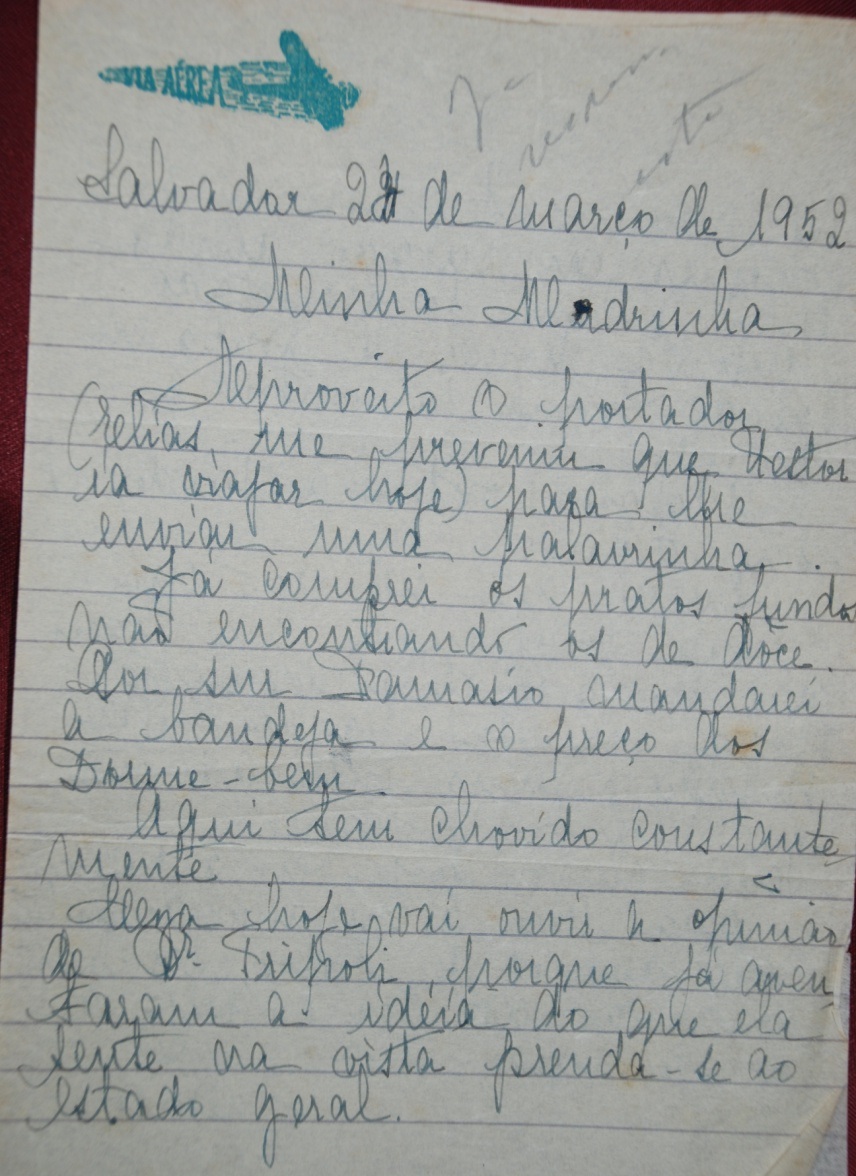 VIA AÉREA
Salvador de março de 1952
Minha Madrinha,
Aproveito o portador
(Zelias, me preveniu que Hector
ia viajar hoje) para lhe
enviar uma palavrinha.
Já comprei os pratos fundos
não encontrando os de dôce.
Por seu Damasio mandarei
a bandeja e o preço dos
Dorme-bem
Aqui tem chovido constante
mente
hoje vai ouvir a opinião
do Dr. Tripoli, porque já aven
taram a idéia do que ela
sente na vista prenda-se ao
estado geral.